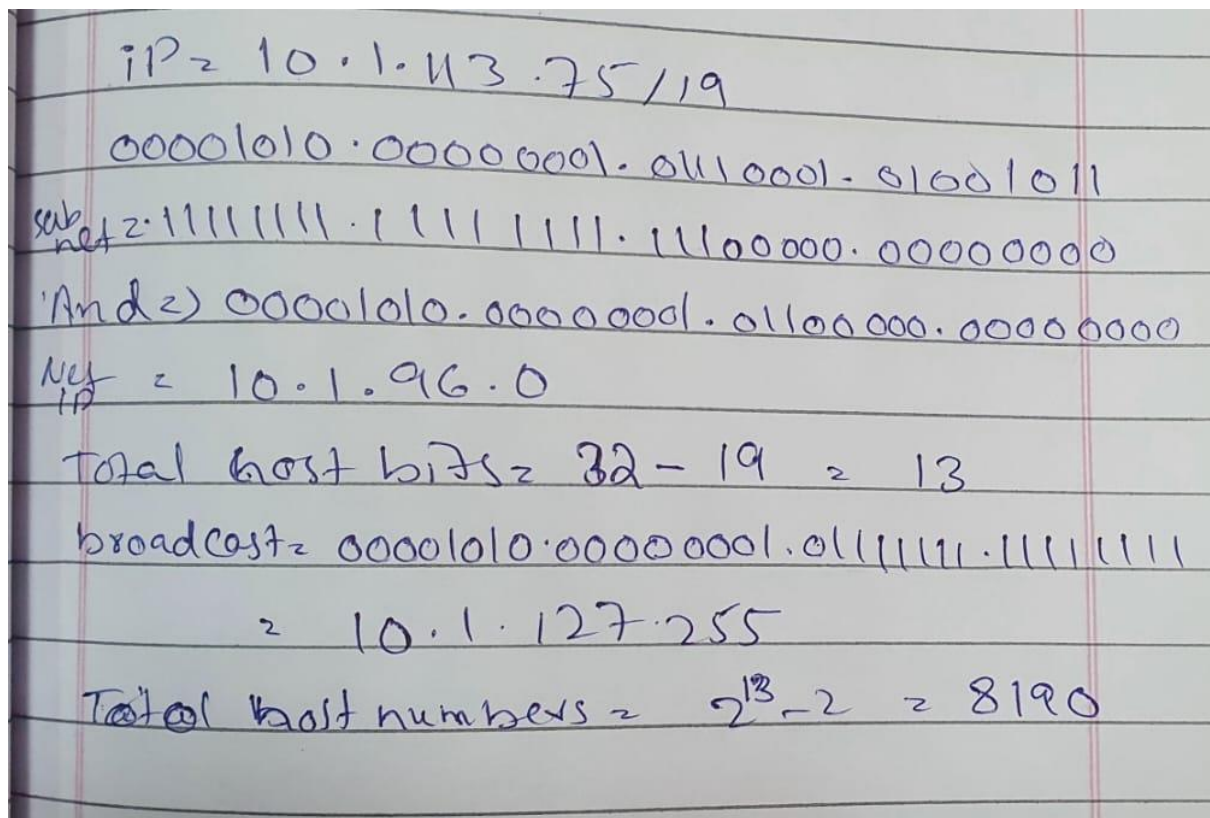 iP = 10.1.113.75/19
00001010.00000001.01110001.01001011
subnet = 11111111.11111111.11100000.00000000
And => 00001010.00000001.01100000.00000000
Net IP = 10.1.96.0
Total host bits = 32 - 19 = 13
broadcast = 00001010.00000001.01111111.11111111
= 10.1.127.255
Total host numbers = 2^13 - 2 = 8190